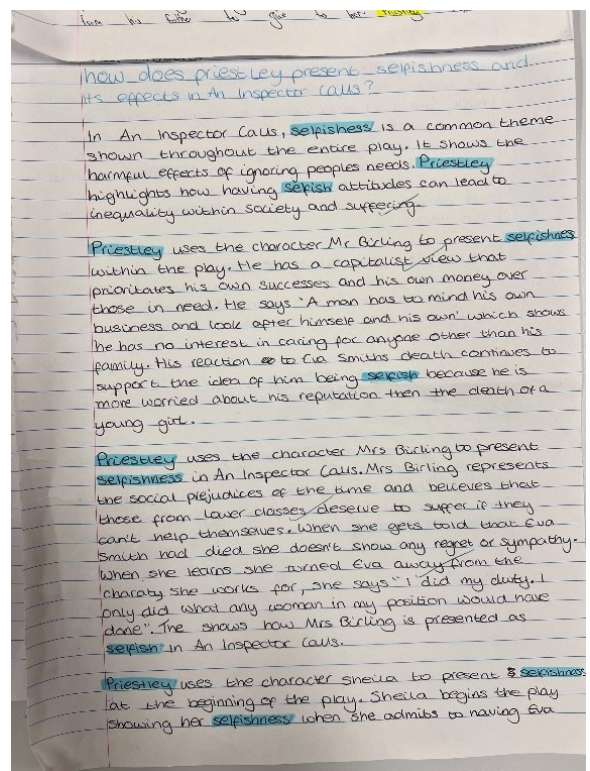 from his father to give to her. Priestley
how does priestley present selfishness and
its effects in An Inspector Calls?
In An Inspector Calls, selfishess is a common theme
shown throughout the entire play. It shows the
harmful effects of ignoring peoples needs. Priestley
highlights how having selfish attitudes can lead to
inequality within society and suffering
Priestley uses the character Mr Birling to present selfishness
within the play. He has a capitalist view that
prioritates his own successes and his own money over
those in need. He says 'A man has to mind his own
business and look after himself and his own' which shows
he has no interest in caring for anyone other than his
family. His reaction to Eva Smiths death continues to
support the idea of him being selfish because he is
more worried about his reputation then the death of a
young girl.
Priestley uses the character Mrs Birling to present
selfishness in An Inspector Calls. Mrs Birling represents
the social prejudices of the time and believes that
those from lower classes deserve to suffer if they
can't help themselves. When she gets told that Eva
Smith had died she doesn't show any regret or sympathy.
When she learns she turned Eva away from the
charaty she works for, she says "I did my duty. I
only did what any woman in my position would have
done". The shows how Mrs Birling is presented as
selfish in An Inspector Calls.
Priestley uses the character Sheila to present selfishness
at the beginning of the play. Sheila begins the play
showing her selfishness when she admits to having Eva